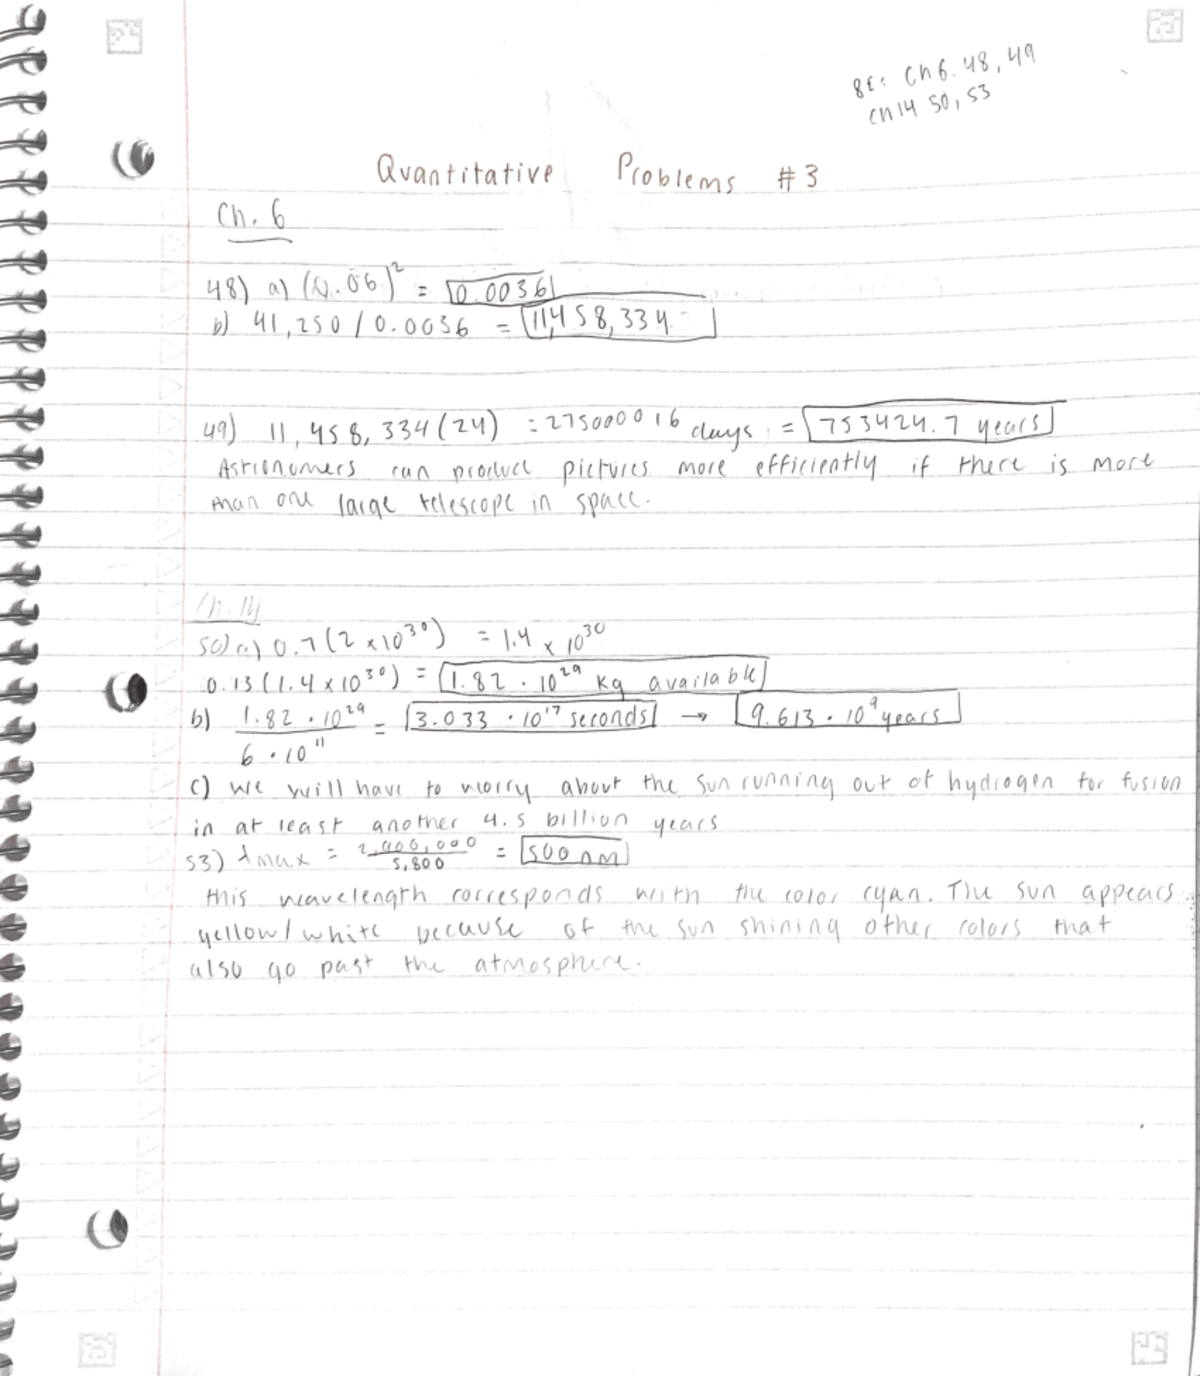 8E: Ch 6. 48, 49
Ch 14 50, 53
Quantitative Problems #3
Ch. 6
48) a) (0.06)² = 0.0036
b) 41,250 / 0.0036 = 11,458,334
49) 11,458,334(24) = 275000016 days = 753424.7 years
Astronomers can product pictures more efficiently if there is more
than one large telescope in space.
Ch. 14
50) a) 0.7(2 × 10³⁰) = 1.4 × 10³⁰
0.13(1.4 × 10³⁰) = 1.82 · 10²⁹ kg available
b) 1.82 · 10²⁹ / 6 · 10¹¹ = 3.033 · 10¹⁷ seconds → 9.613 · 10⁹ years
c) We will have to worry about the sun running out of hydrogen for fusion
in at least another 4.5 billion years
53) λmax = 2,900,000 / 5,800 = 500 nm
This wavelength corresponds with the color cyan. The sun appears
yellow/white because of the sun shining other colors that
also go past the atmosphere.